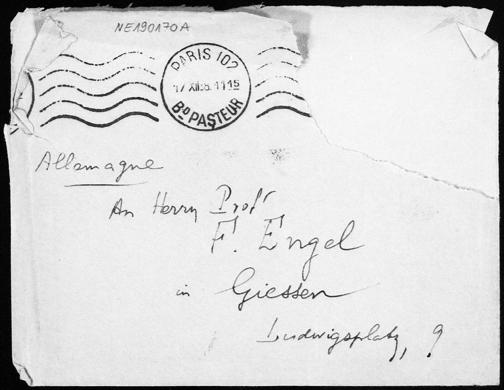 NE190170A
PARIS 102
17 XII
1115
Bᴰ PASTEUR
Allemagne
An Herrn Profʳ
F. Engel
in Giessen
Ludwigsplatz, 9